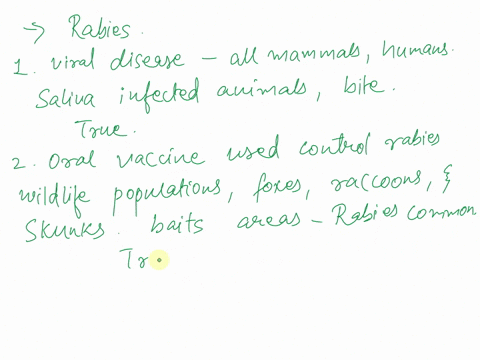 → Rabies.
1. viral disease – all mammals, humans.
Saliva infected animals, bite.
True.
2. Oral vaccine used control rabies
wildlife populations, foxes, raccoons, &
Skunks. baits areas – Rabies common
Tr